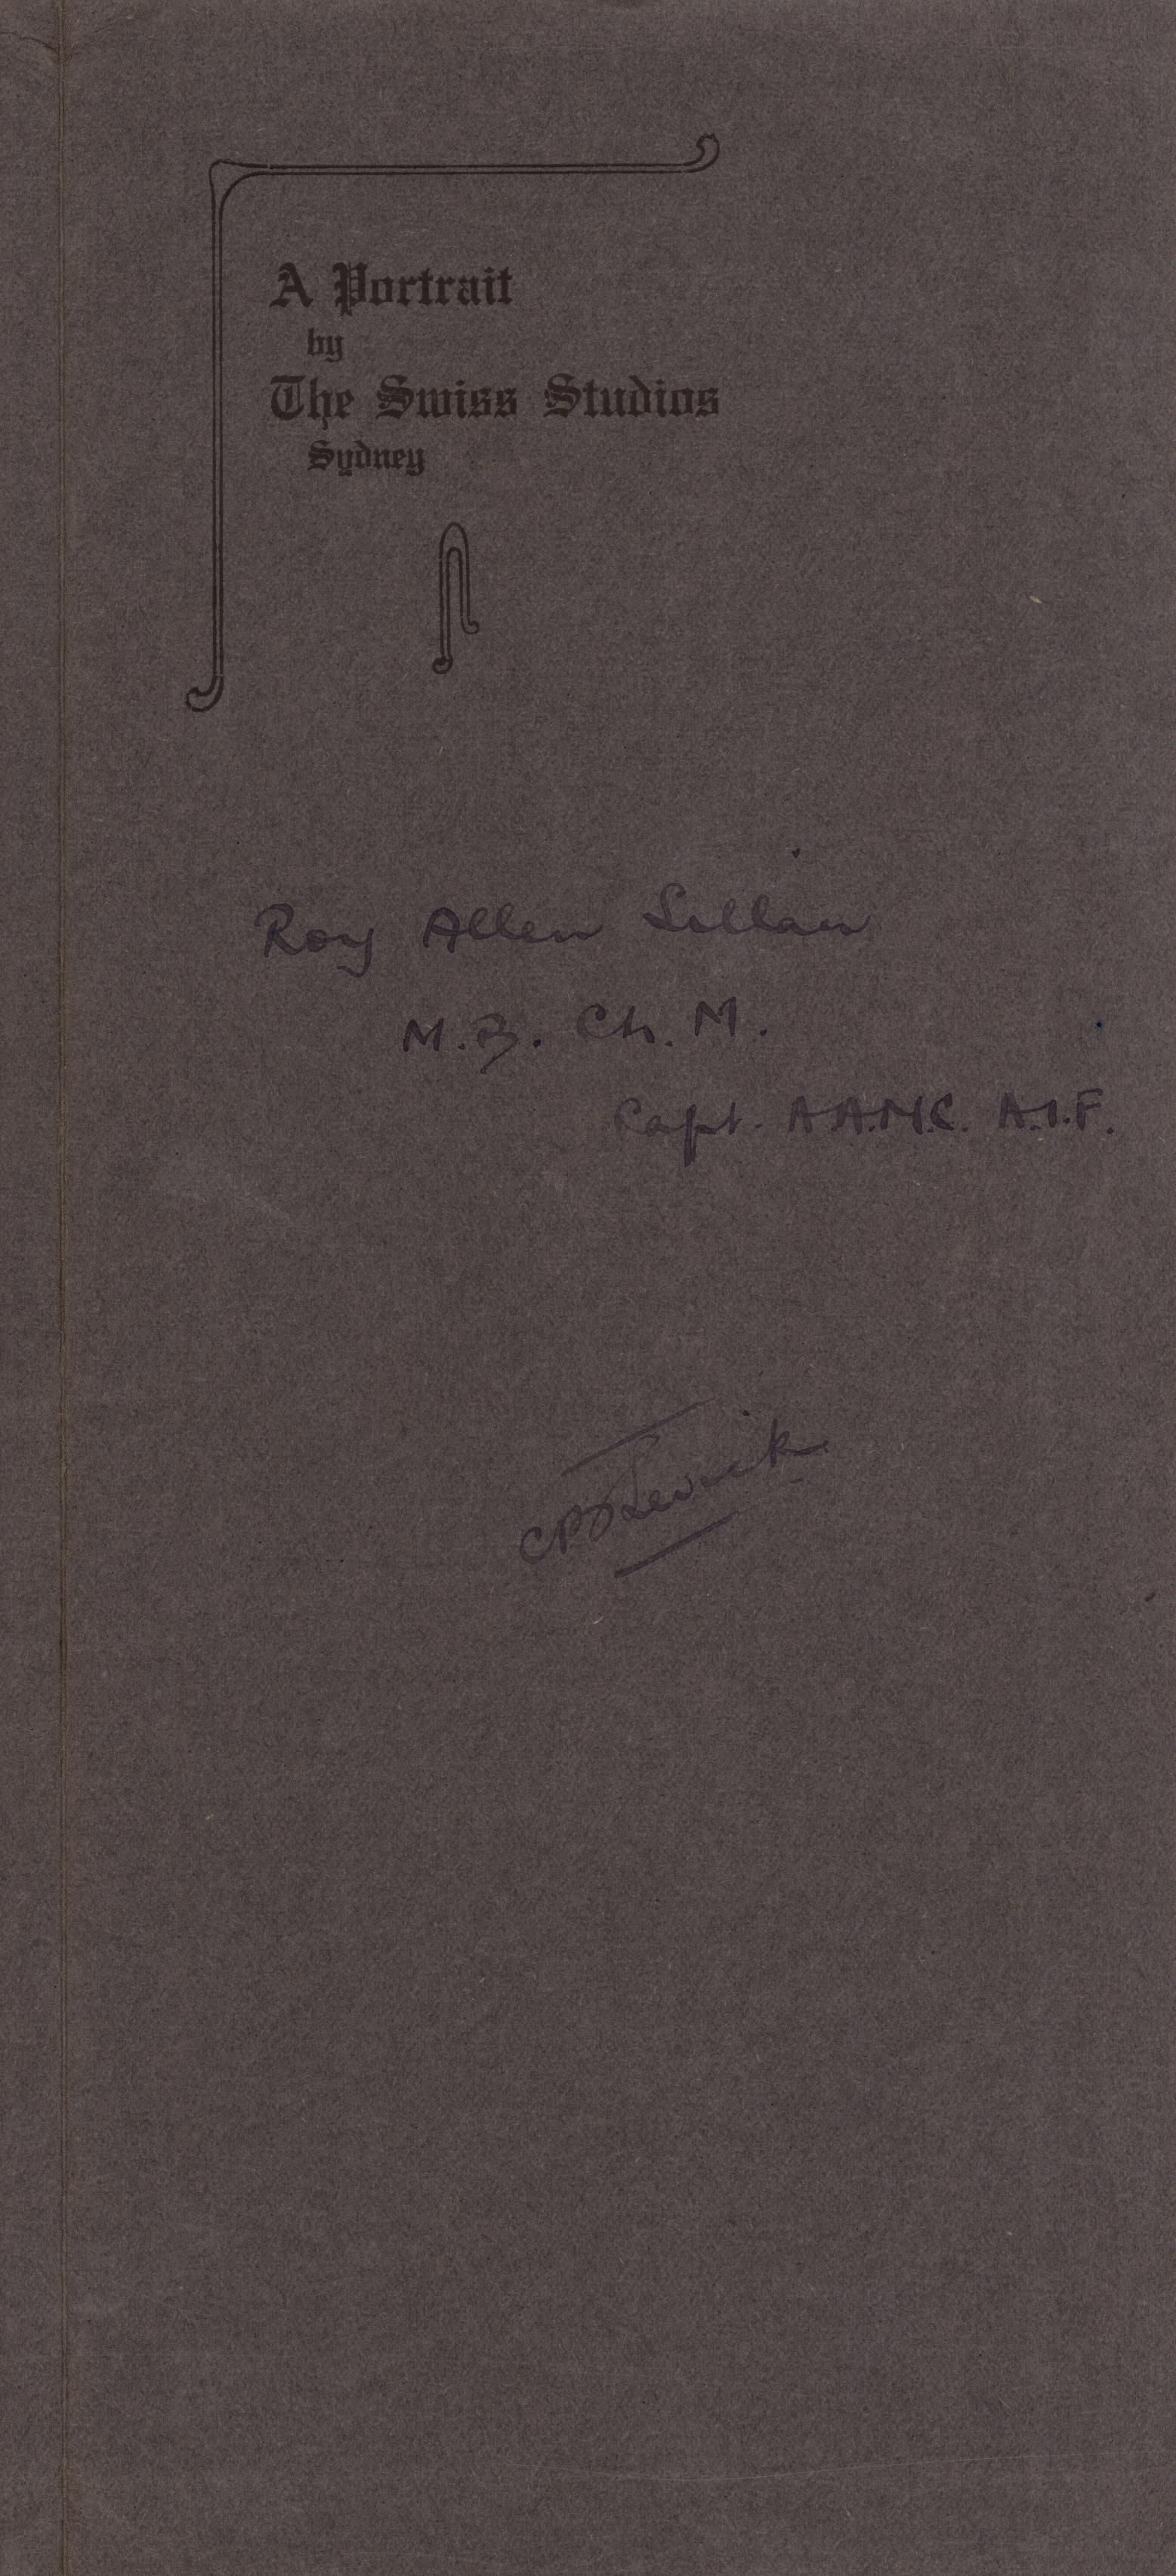 A Portrait
by
The Swiss Studios
Sydney
Roy Allen
M.B. Ch. M.
Capt. A.A.M.C. A.I.F.